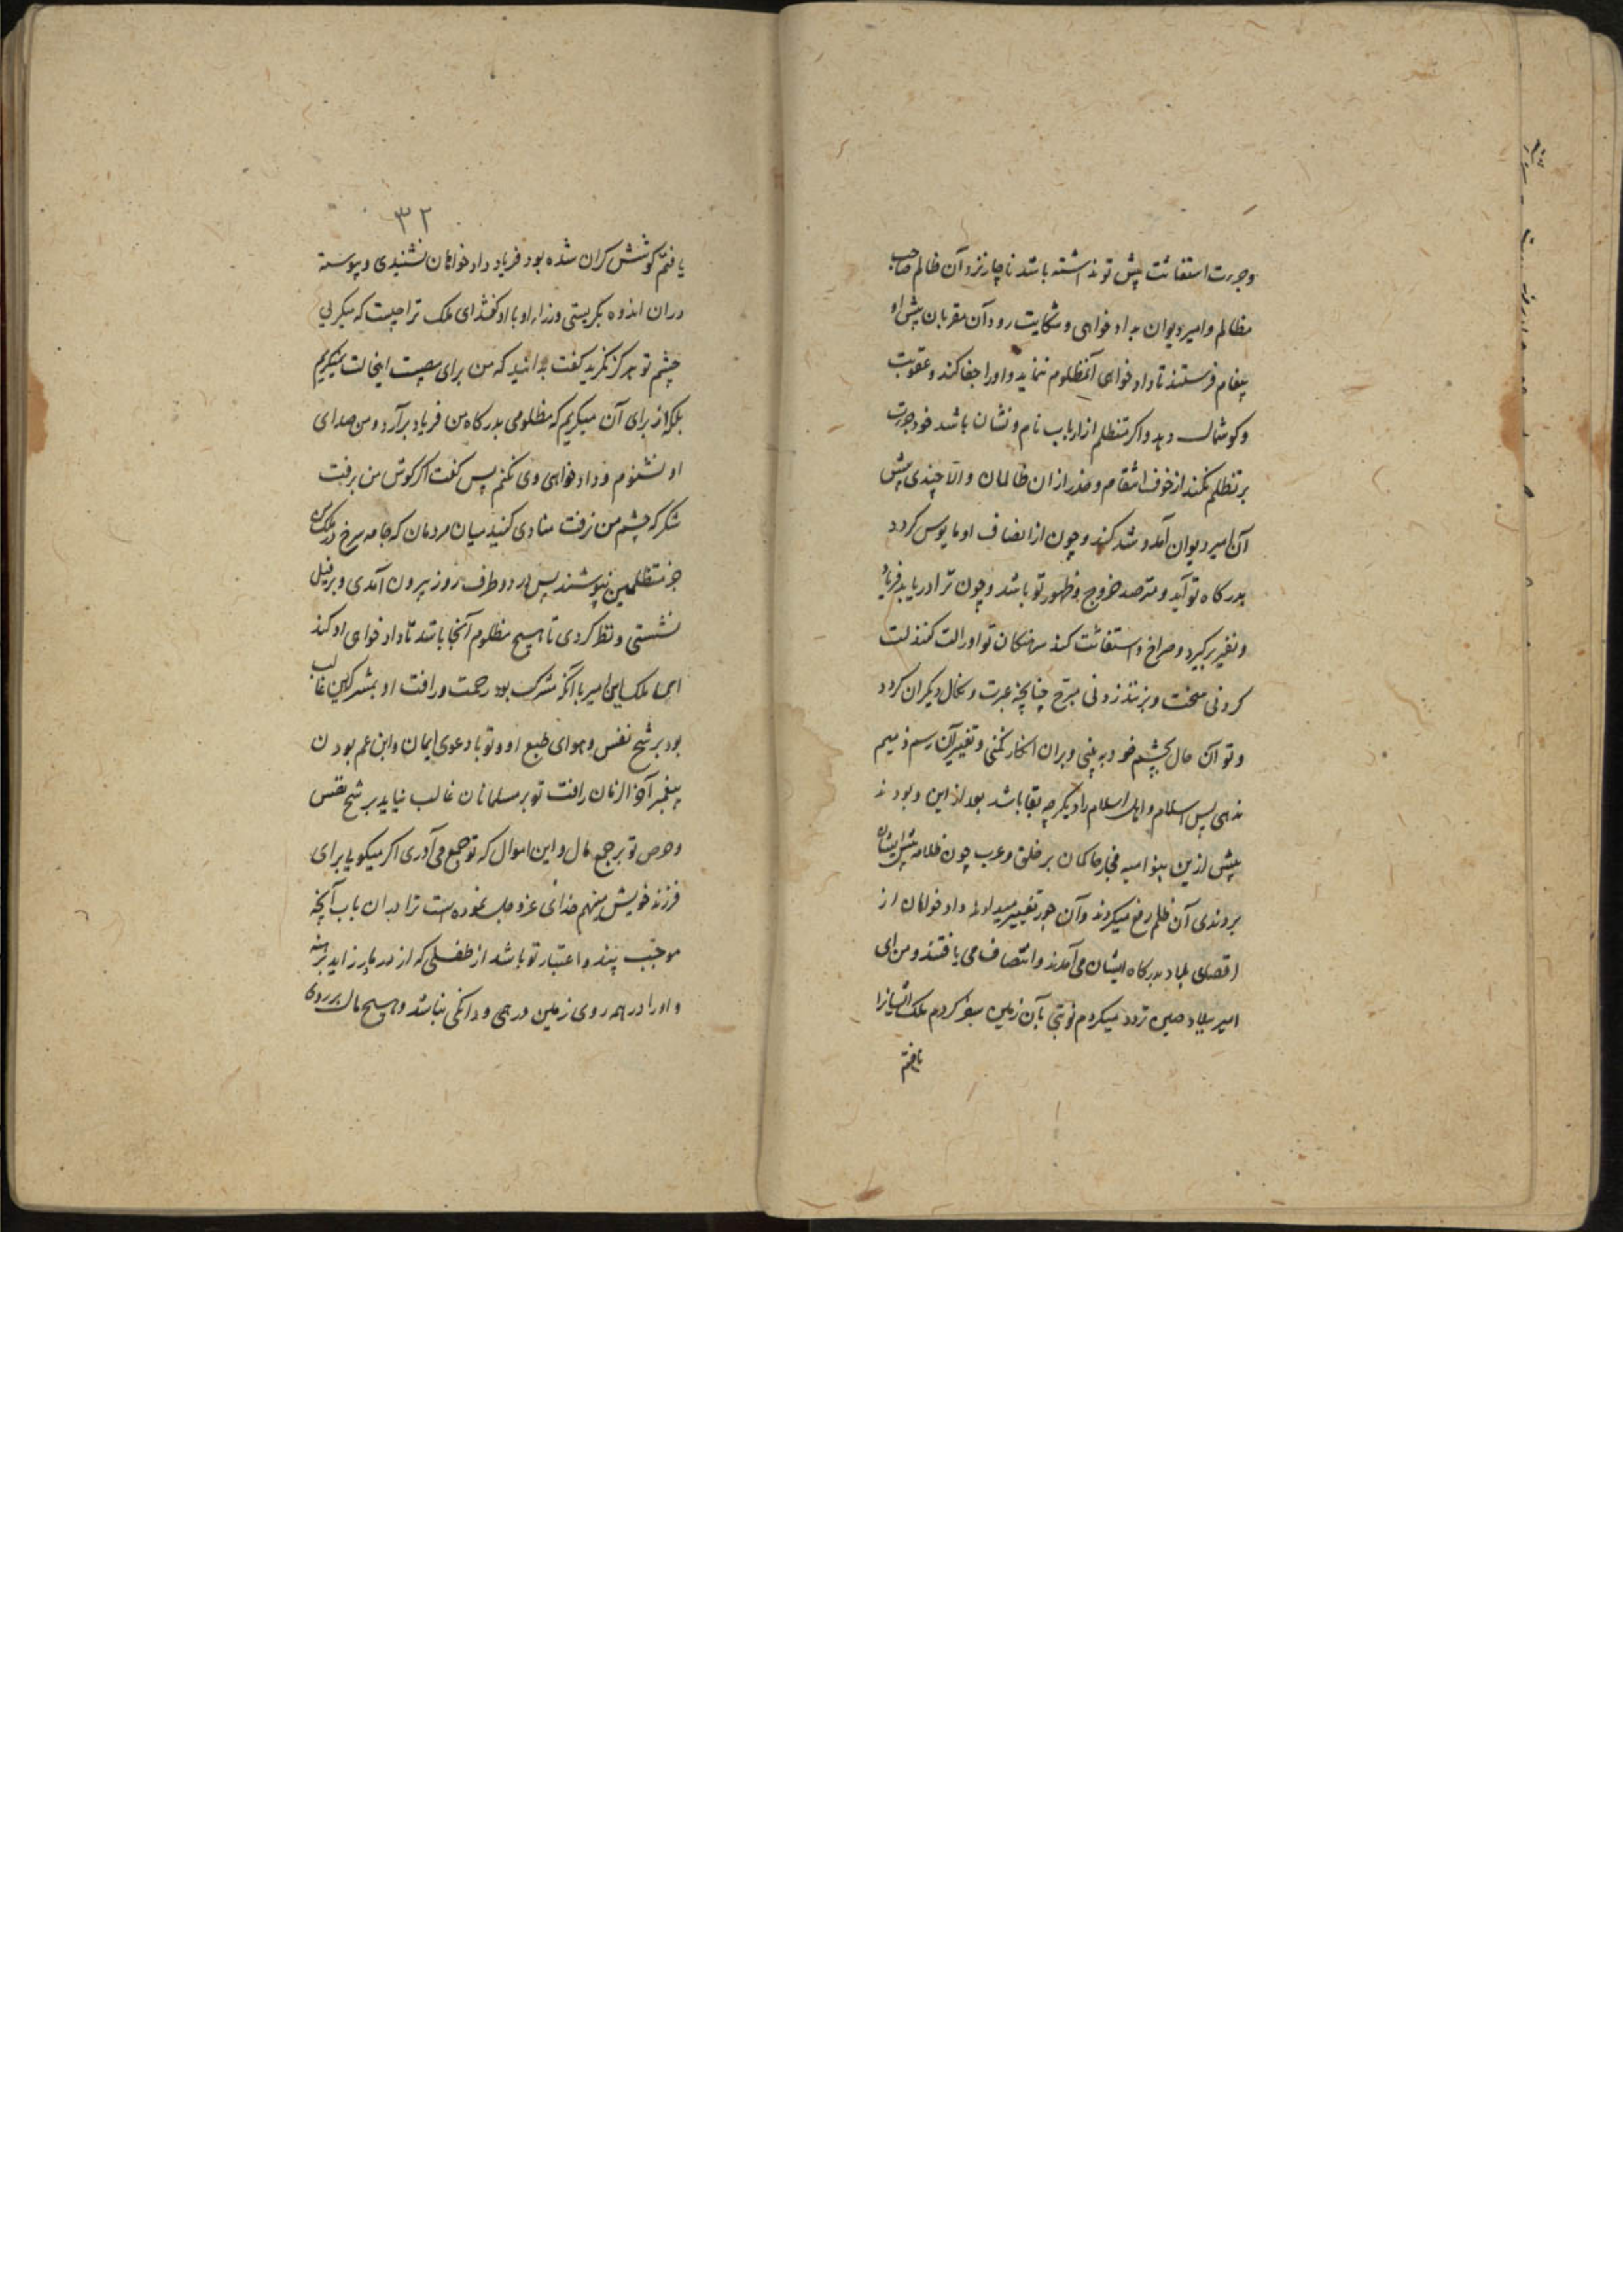 وجرءت استغاثت پیش تو نداشته باشد ناچار نزد آن ظالم صاحب
مظالم و امیر دیوان بداد خواهی و شکایت رود آن مقربان پیش او
پیغام فرستند تا داد خواهی آنمظلوم ننماید و اورا جفا کند و عقوبت
و کوشمال دهد و اکر متظلم از ارباب نام و نشان باشد خود جرءت
بر تظلم نکند از خوف انتقام و حذر از ان ظالمان و الا چندی پیش
آن امیر دیوان آمد و شد کند و چون از انصاف او مایوس کردد
بدرکاه تو آید و مترصد خروج و ظهور تو باشد و چون ترا دریابد فریاد
و نفیر برکیرد و صراخ و استغاثت کند سرهنکان تو اورا لت کنند لت
کردنی سخت و بزنند زدنی مبرح چنانچه عبرت و نکال دیکران کردد
و تو آن حال بچشم خود به بینی و بران انکار نکنی و تغییر آن رسم ذمیم
ندهی پس اسلام و اهل اسلام را دیکر چه بقا باشد بعد از این و بودند
پیش ازین بنو امیه فجار حاکمان بر خلق و عرب چون ظلامه پیش ایشان
بردندی آن ظلم رفع میکردند و آن جور تغییر میدادند داد خواهان از
اقصای بلاد بدرکاه ایشان می آمدند و انتصاف می یافتند و من ای
امیر ببلاد صین تردد میکردم نوبتی بآن زمین سفر کردم ملک ایشانرا
یافتم
۳۲
یافتم کوشش کران شده بود فریاد داد خواهان نشنیدی و پیوسته
دران اندوه بکریستی وزراء او با او کفتند ای ملک ترا چیست که میکریی
چشم تو هرکز نکرید کفت بدانید که من برای مصیبت اینحالت نمیکریم
بلکه از برای آن میکریم که مظلومی بدرکاه من فریاد برآرد و من صدای
او نشنوم و داد خواهی وی نکنم پس کفت اکر کوش من برفت
شکر که چشم من نرفت منادی کنید میان مردمان که جامه سرخ در ملک من
جز متظلمین نپوشند پس در دو طرف روز بیرون آمدی و بر فیل
نشستی و نظر کردی تا هیچ مظلوم آنجا باشد تا داد خواهی او کند
ای امیر با آنکه مشرک بود رحمت و رافت او بمشرکین غالب
بود بر شح نفس و هوای طبع او و تو با دعوی ایمان و ابن عم بودن
پیغمبر آخر الزمان رافت تو بر مسلمانان غالب نیاید بر شح نفس
و حرص تو بر جمع مال و این اموال که تو جمع می آوری اکر میکویی برای
فرزند خویش مینهم خدای عز و جل نموده است ترا دران باب آنچه
موجب پند و اعتبار تو باشد از طفلی که از مادر زاید برهنه
و اورا در همه روی زمین درهمی و دانکی نباشد و هیچ مال بر روی